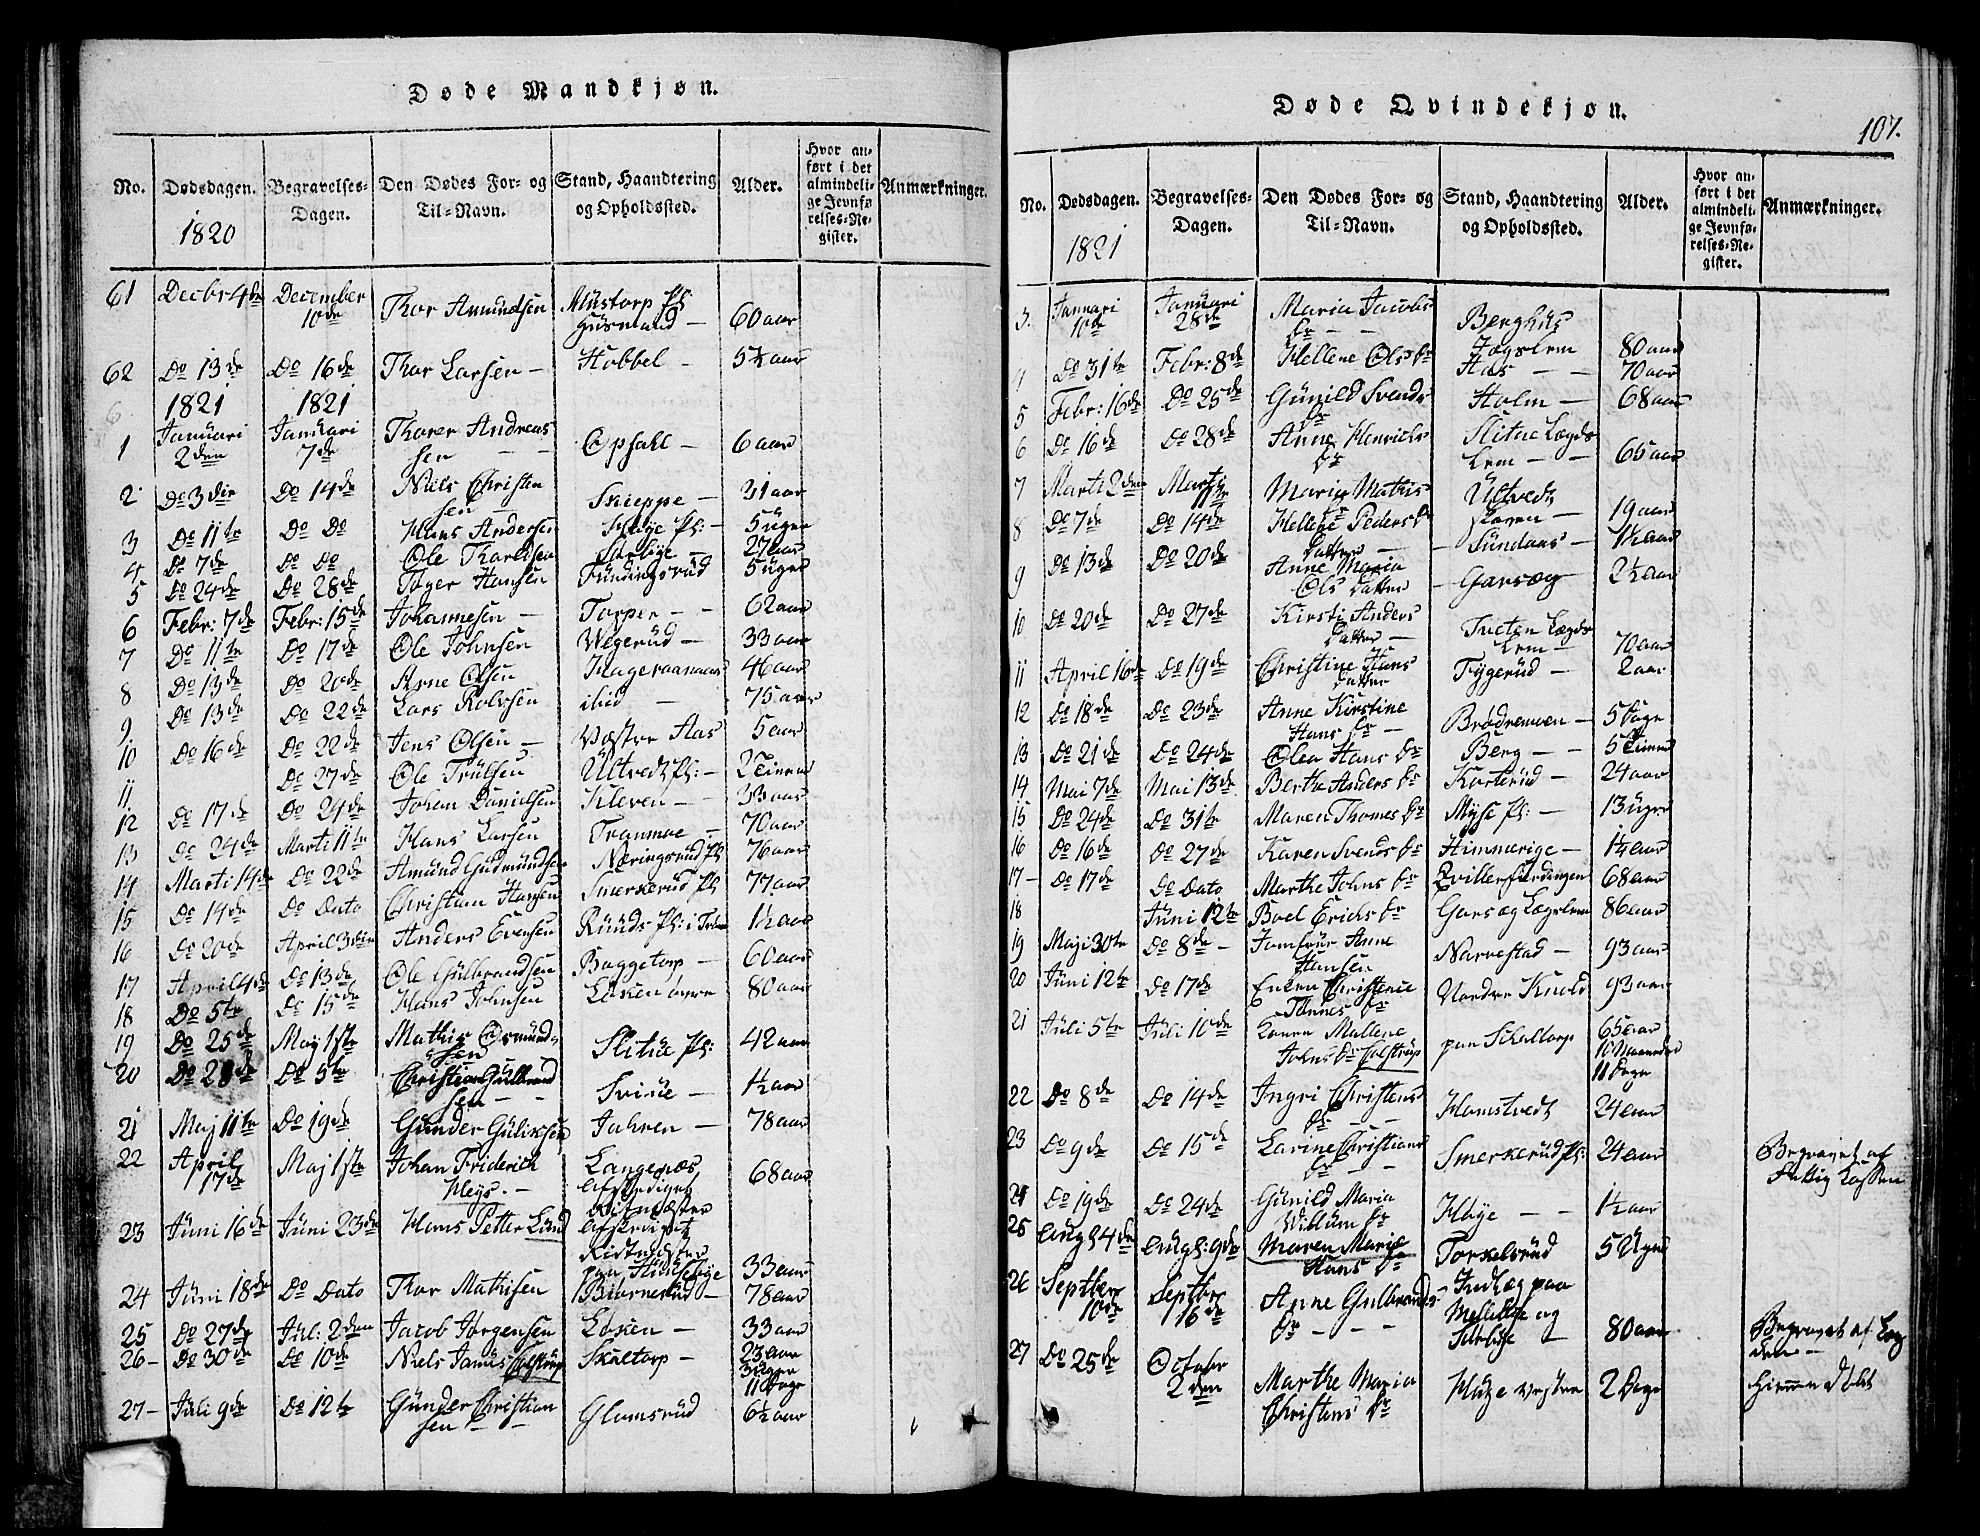 Døde Mandkjøn.
No. Dødsdagen. Begravelses-Dagen. Den Dødes For- og Til-Navn. Stand, Haandtering og Opholdssted. Alder. Hvor anført i det almindelige Jevnførelses-Register. Anmærkninger.
1820
61 Decbr 4de December 10de Thor Amundsen Mustorp Pl: Husmand 60 aar
62 Do 13de Do 16de Thor Larsen Hobbel 5½ aar
1821 1821
1 Januari 2den Januari 7de Thorer Andreassen Opsall 6 aar
2 Do 3die Do 14de Niels Christensen Snieppe 31 aar
3 Do 11te Do Do Hans Andersen Pl: 5 uger
4 Do 7de Do Do Ole 27 aar
5 Do 24de Do 28de Hansen Fundingsrud 5 uger
6 Febr: 7de Febr: 15de Johannesen Torper 62 aar
7 Do 11te Do 17de Ole Johnsen Wegerud 33 aar
8 Do 13de Do 20de Arne Olsen 46 aar
9. Do 13de Do 22de Lars Rolvsen ibid 75 aar
10 Do 16de Do 22de Jens Olsen Væstre Aas 5 aar
11 Do 27de Ole Trulsen Ultvedt Pl: 2 Timer
12 Do 17de Do 24de Johan Danielsen Kleven 33 aar
13 Do 24de Marti 11te Hans Larsen Tranmoe 70 aar
14 Marti 14de Do 22de Amund Gudmundsen Næringsrud Pl 76 aar
15 Do 14de Do Dato Christian Hansen Smerkerud Pl 77 aar
16 Do 20de April 3die Anders Evensen Pl: i 1½ aar
17 April 4de Do 13de Ole Gulbrandsen Baggetorp 60 aar
18 Do 5te Do 15de Hans Johnsen Løken 80 aar
19 Do 25de Maj 1ste Mathis Osmundsen Slitue Pl: 42 aar
20 Do 28de Do 5te Christian Gulbrandsen Svinue 1½ aar
21 Maj 11te Do 19de Gunder Guliksen Jahren 78 aar
22 April 17de Maj 1ste Johan Friderich Heys. Langenæs 68 aar
23 Juni 16de Juni 23de Hans Petter Lund 33 aar
24 Juni 18de Do Dato Thor Mathisen Biørnerud 78 aar
25 Do 27de Jul: 2den Jacob Jørgensen Løken 33 aar
26 Do 30de Do 10de Niels Colstrup Skaltorp 23 aar 11 Dage
27 Juli 9de Do 12te Gunder Christiansen Glamsrud 6½ aar
Døde Qvindekjøn.
107.
No. Dødsdagen. Begravelses-Dagen. Den Dødes For- og Til-Navn. Stand, Haandtering og Opholdssted. Alder. Hvor anført i det almindelige Jevnførelses-Register. Anmærkninger.
1821
3. Januari 10de Januari 28de Maria Jacobs Dr Berghus Lægslem 80 aar
4 Do 31te Febr: 8de Hellene Ols Dr Aas 70 aar
5 Febr: 16de Do 25de Gunild Svends Dr Holm 68 aar
6 Do 16de Do 28de Anne Henrichs Dr Slitue Lægdslem 65 aar
7 Marti 2den Marti 11te Maria Mathis Dr Ultvedt 19 aar
8 Do 7de Do 14de Hellene Peders Datter Sundaas 1½ aar
9 Do 13de Do 20de Anne Maria Ols Datter Garseg 2½ aar
10 Do 20de Do 27de Kirsti Anders Datter Lægdslem 70 aar
11 April 16de Do 19de Christine Hans Datter Tygerud 2 aar
12 Do 18de Do 23de Anne Kirstine Hans Dr Brødremoen 5 Dage
13 Do 21de Do 24de Olea Hans Dr Berg 5 Timer
14 Mai 7de Mai 13de Berthe Anders Dr Korterud 24 aar
15 Do 24de Do 31te Maren Thomes Dr Myse Pl: 13 uger
16 Do 16de Do 27de Karen Svends Dr Himmerige 1¼ aar
17 Do 17de Do Dato Marthe Johns Dr 68 aar
18 Juni 12te Boel Erichs Dr Garseg Lægslem 86 aar
19 Maji 30te Do 8de Jomfrue Anne Hansen Narvestad 93 aar
20 Juni 12te Do 17de Enken Christence Tønnes Dr Nordre Knold 93 aar
21 Juli 5te Juli 10de Konen Mallene Johns Dr Colstrup paa Schaltorp 65 aar 10 Maaneder 11 Dage
22 Do 8de Do 14de Ingri Christens Dr Homstvedt 24 aar
23 Do 9de Do 15de Larine Christians Dr Smerkerud Pl: 24 aar Begravet af Fattig Cassen
24 Do 19de Do 24de Gunild Maria Willum Dr Høye 1½ aar
25 Augs 4de Augs: 9de Maren Marie Hans Dr Torkelsrud 5 Uger
26 Septbr 10de Septbr 16de Anne Gulbrands Dr Indlæg paa og 80 aar Begravet af Lægden
27 Do 25de October 2den Marthe Maria Christens Dr Vestre 2 Dage Hiemmedøbt